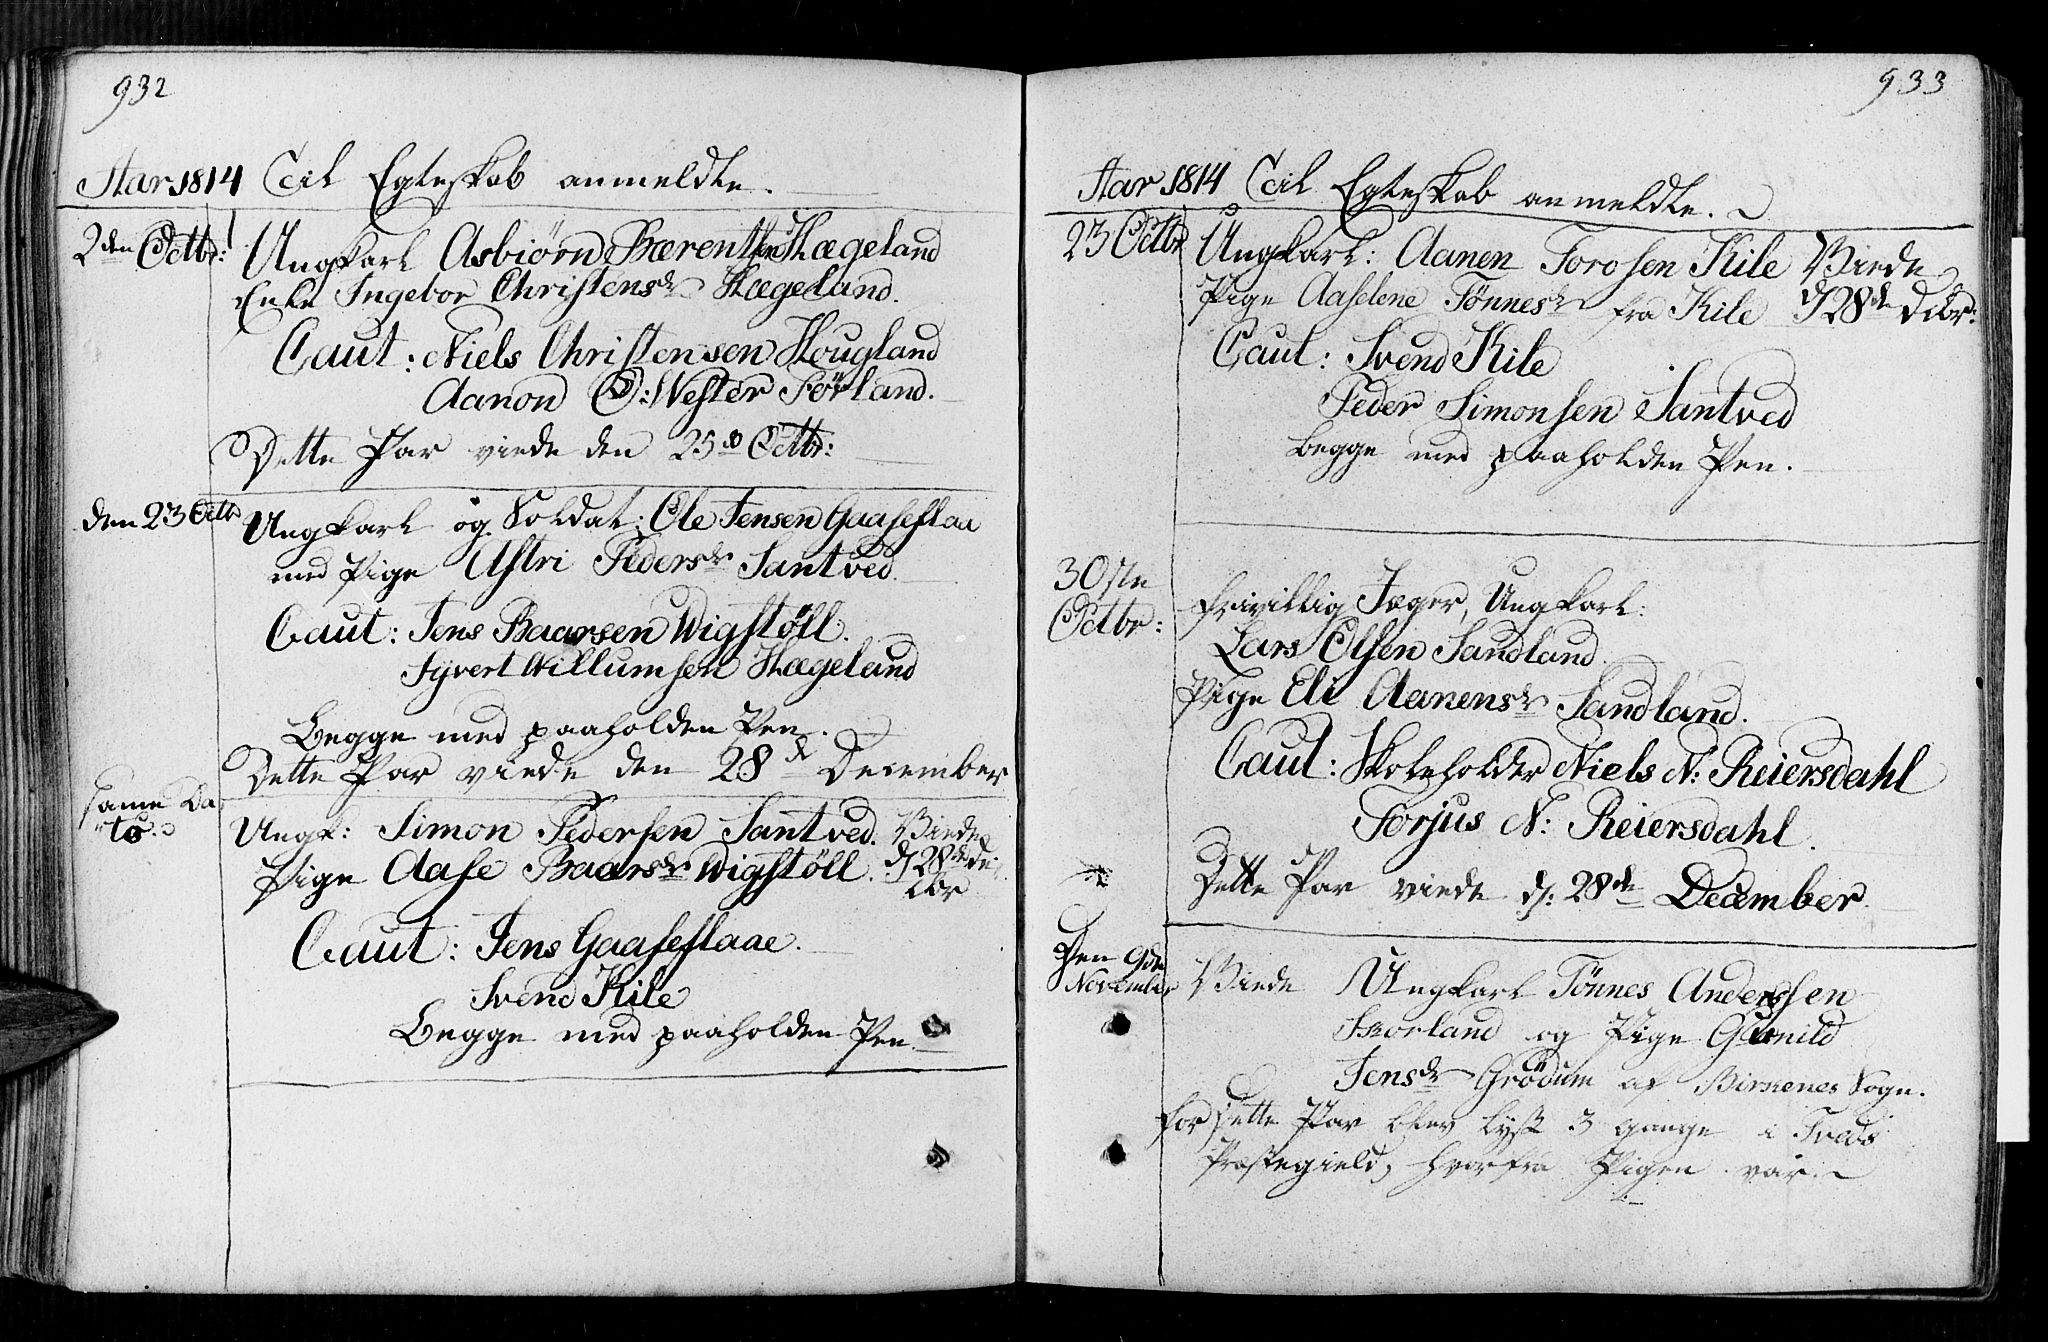 932
Aar 1814 Til Egteskab anmeldte.
2den Octbr: Ungkarl Asbiørn Bærentsen Hægeland
Enke Ingebor Christensdr Hægeland.
Caut: Niels Christensen Hougland
Aanon O: Wester Førland.
Dette Par viede den 25de Octbr:
den 23 Octb Ungkarl og Soldat: Ole Jensen Gaaseflaa
med Pige Astri Pedersdr Santved
Caut: Jens Baarsen Wigstöll.
Syvert Willumsen Hægeland
Begge med paaholden Pen.
Dette Par viede den 28de December
same Da-
to. Ungk: Simon Pedersen Santved. Viede
Pige Aase Baarsdr Wigstöll. d 28de De-
cbr
Caut: Jens Gaaseflaae.
Svend Kile
Begge med paaholden Pen.
933
Aar 1814 Til Egteskab anmeldte.
23 Octbr Ungkarl: Aanen Torosen Kile Viede
Pige Aaselene Tönnesdr fra Kile d 28de Dcbr:
Caut: Svend Kile
Peder Simonsen Santved
begge med paaholden Pen.
30ste
Octbr: frivillig Jæger, Ungkarl:
Lars Olsen Sandland
Pige Eli Aanensdr Sandland.
Caut: Skoleholder Niels N: Reiersdahl
Torjus N: Reiersdahl.
Dette Par viede d: 28de December.
Den 9de
November Viede Ungkarl Tönnes Anderssen
Skorland og Pige Gunild
Jensdr Grödum af Birkenes Sogn.
for dette Par blev lyst 3 gange i Tveds
Præstegield, hvorfra Pigen var.